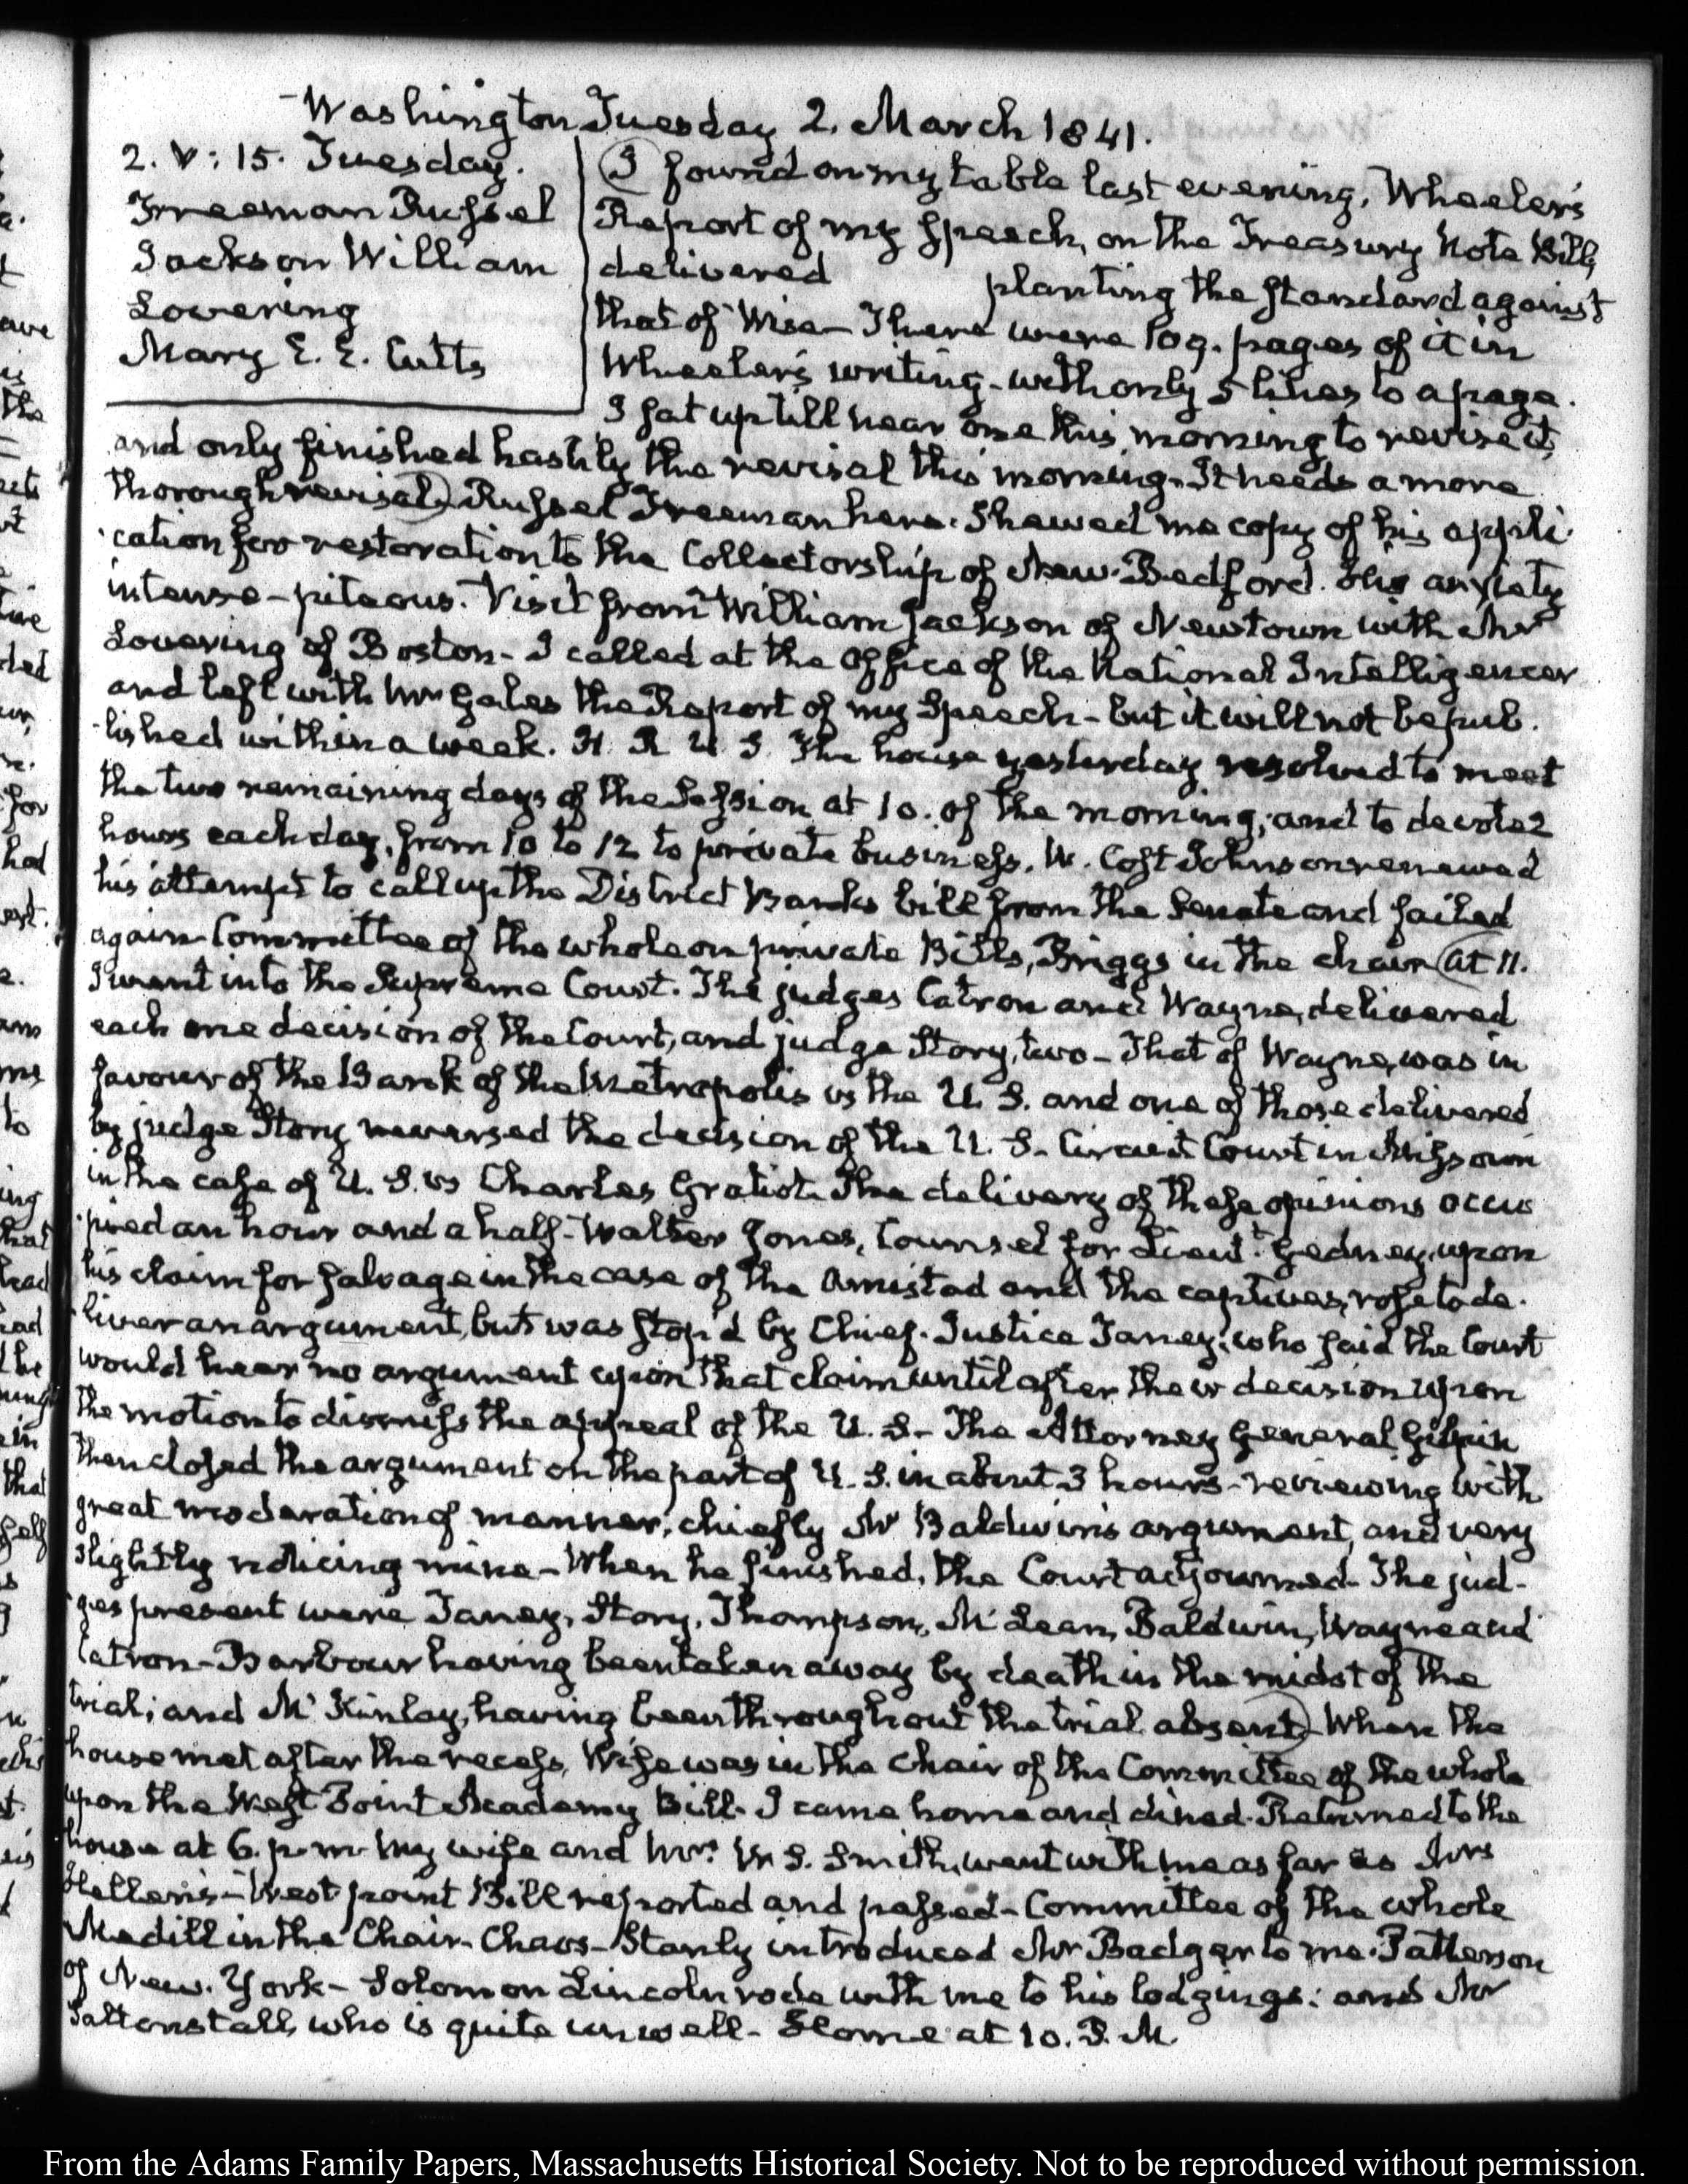 Washington Tuesday 2. March 1841.
2. V: 15. Tuesday.
Freeman Russel
Jackson William
Lovering
Mary E. E. Cutts
I found on my table last evening, Wheeler's
Report of my Speech, on the Treasury Note Bill,
delivered planting the standard against
that of Wise – There were 109. pages of it in
Wheeler's writing – with only 5 lines to a page.
I sat up till near one this morning to revise it,
and only finished hastily the revisal this morning. It needs a more
thorough revisal. Russel Freeman here. Shewed me copy of his appli-
cation for restoration to the Collectorship of New-Bedford. His anxiety
intense – piteous. Visit from William Jackson of Newtown with Mr
Lovering of Boston – I called at the Office of the National Intelligencer
and left with Mr Gales the Report of my Speech – but it will not be pub-
lished within a week. H. R. U. S. The house yesterday resolved to meet
the two remaining days of the Session at 10. of the morning; and to devote 2
hours each day, from 10 to 12 to private business. W. Cost Johnson renewed
his attempt to call up the District Banks bill from the Senate and failed
again – Committee of the whole on private Bills, Briggs in the chair. At 11.
I went into the Supreme Court. The judges Catron and Wayne, delivered
each one decision of the Court, and judge Story, two – That of Wayne, was in
favour of the Bank of the Metropolis vs the U. S. and one of those delivered
by judge Story reversed the decision of the U. S. Circuit Court in Missouri
in the case of U. S. vs Charles Gratiot. The delivery of these opinions occu-
pied an hour and a half – Walter Jones, Counsel for Lieutt. Gedney, upon
his claim for salvage in the case of the Amistad and the captives, rose to de-
liver an argument, but was stop'd by Chief-Justice Taney; who said the Court
would hear no argument upon that claim until after their decision upon
the motion to dismiss the appeal of the U. S. – The Attorney General Gilpin
then closed the argument on the part of U. S. in about 3 hours – reviewing with
great moderation of manner, chiefly Mr Baldwin's argument, and very
slightly noticing mine – When he finished, the Court adjourned. The jud-
ges present were Taney, Story, Thompson, McLean, Baldwin, Wayne and
Catron – Barbour having been taken away by death in the midst of the
trial; and McKinlay, having been throughout the trial absent. When the
house met after the recess, Wise was in the Chair of the Committee of the whole
upon the West Point Academy Bill. I came home and dined. Returned to the
house at 6. p. m. My wife and Mrs. W. S. Smith, went with me as far as Mrs
Hellen's – West point Bill reported and passed – Committee of the whole
Medill in the Chair. Chaos – Stanly introduced Mr Badger to me. Patterson
of New-York – Solomon Lincoln rode with me to his lodgings: and Mr
Saltonstall, who is quite unwell – Home at 10. P. M.
From the Adams Family Papers, Massachusetts Historical Society. Not to be reproduced without permission.